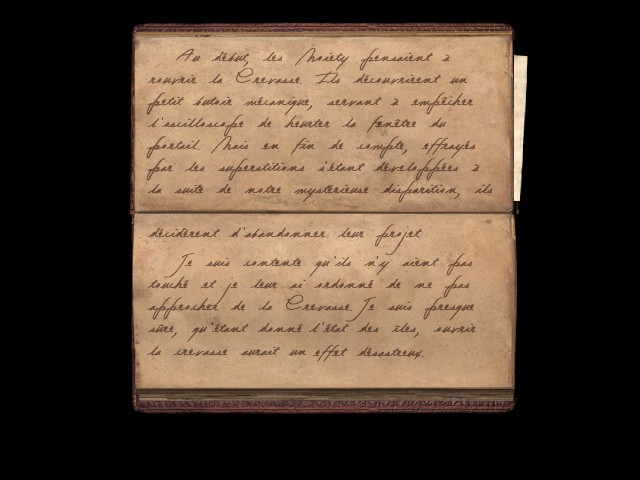 Au début, les Moiety pensaient à
rouvrir la Crevasse. Ils découvrirent un
petit butoir mécanique, servant à empêcher
l'oscilloscope de heurter la fenêtre du
portail. Mais en fin de compte, effrayés
par les superstitions s'étant développées à
la suite de notre mystérieuse disparition, ils
décidèrent d'abandonner leur projet
Je suis contente qu'ils n'y aient pas
touché et je leur ai ordonné de ne pas
approcher de la Crevasse. Je suis presque
sûre, qu'étant donné l'état des îles, ouvrir
la crevasse aurait un effet désastreux.